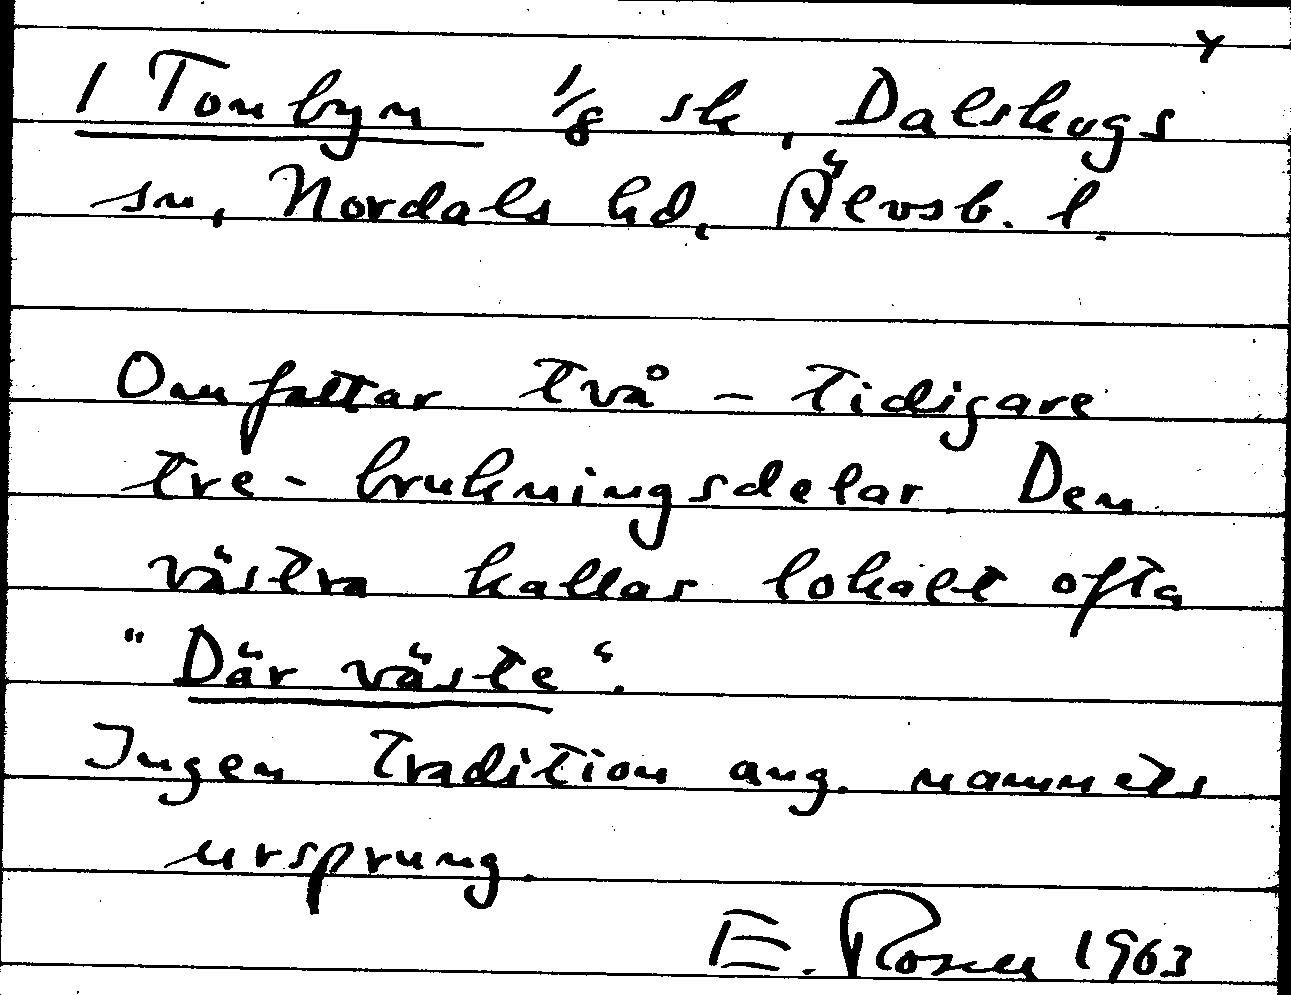 1 Tombyn 1/8 sk, Dalskogs
sn, Nordals hd, Älvsb. l.
Omfattar två - tidigare
tre - brukningsdelar. Den
västra kallas lokalt ofta
"Där väste".
Ingen tradition ang. namnets
ursprung.
E. Rosen 1963